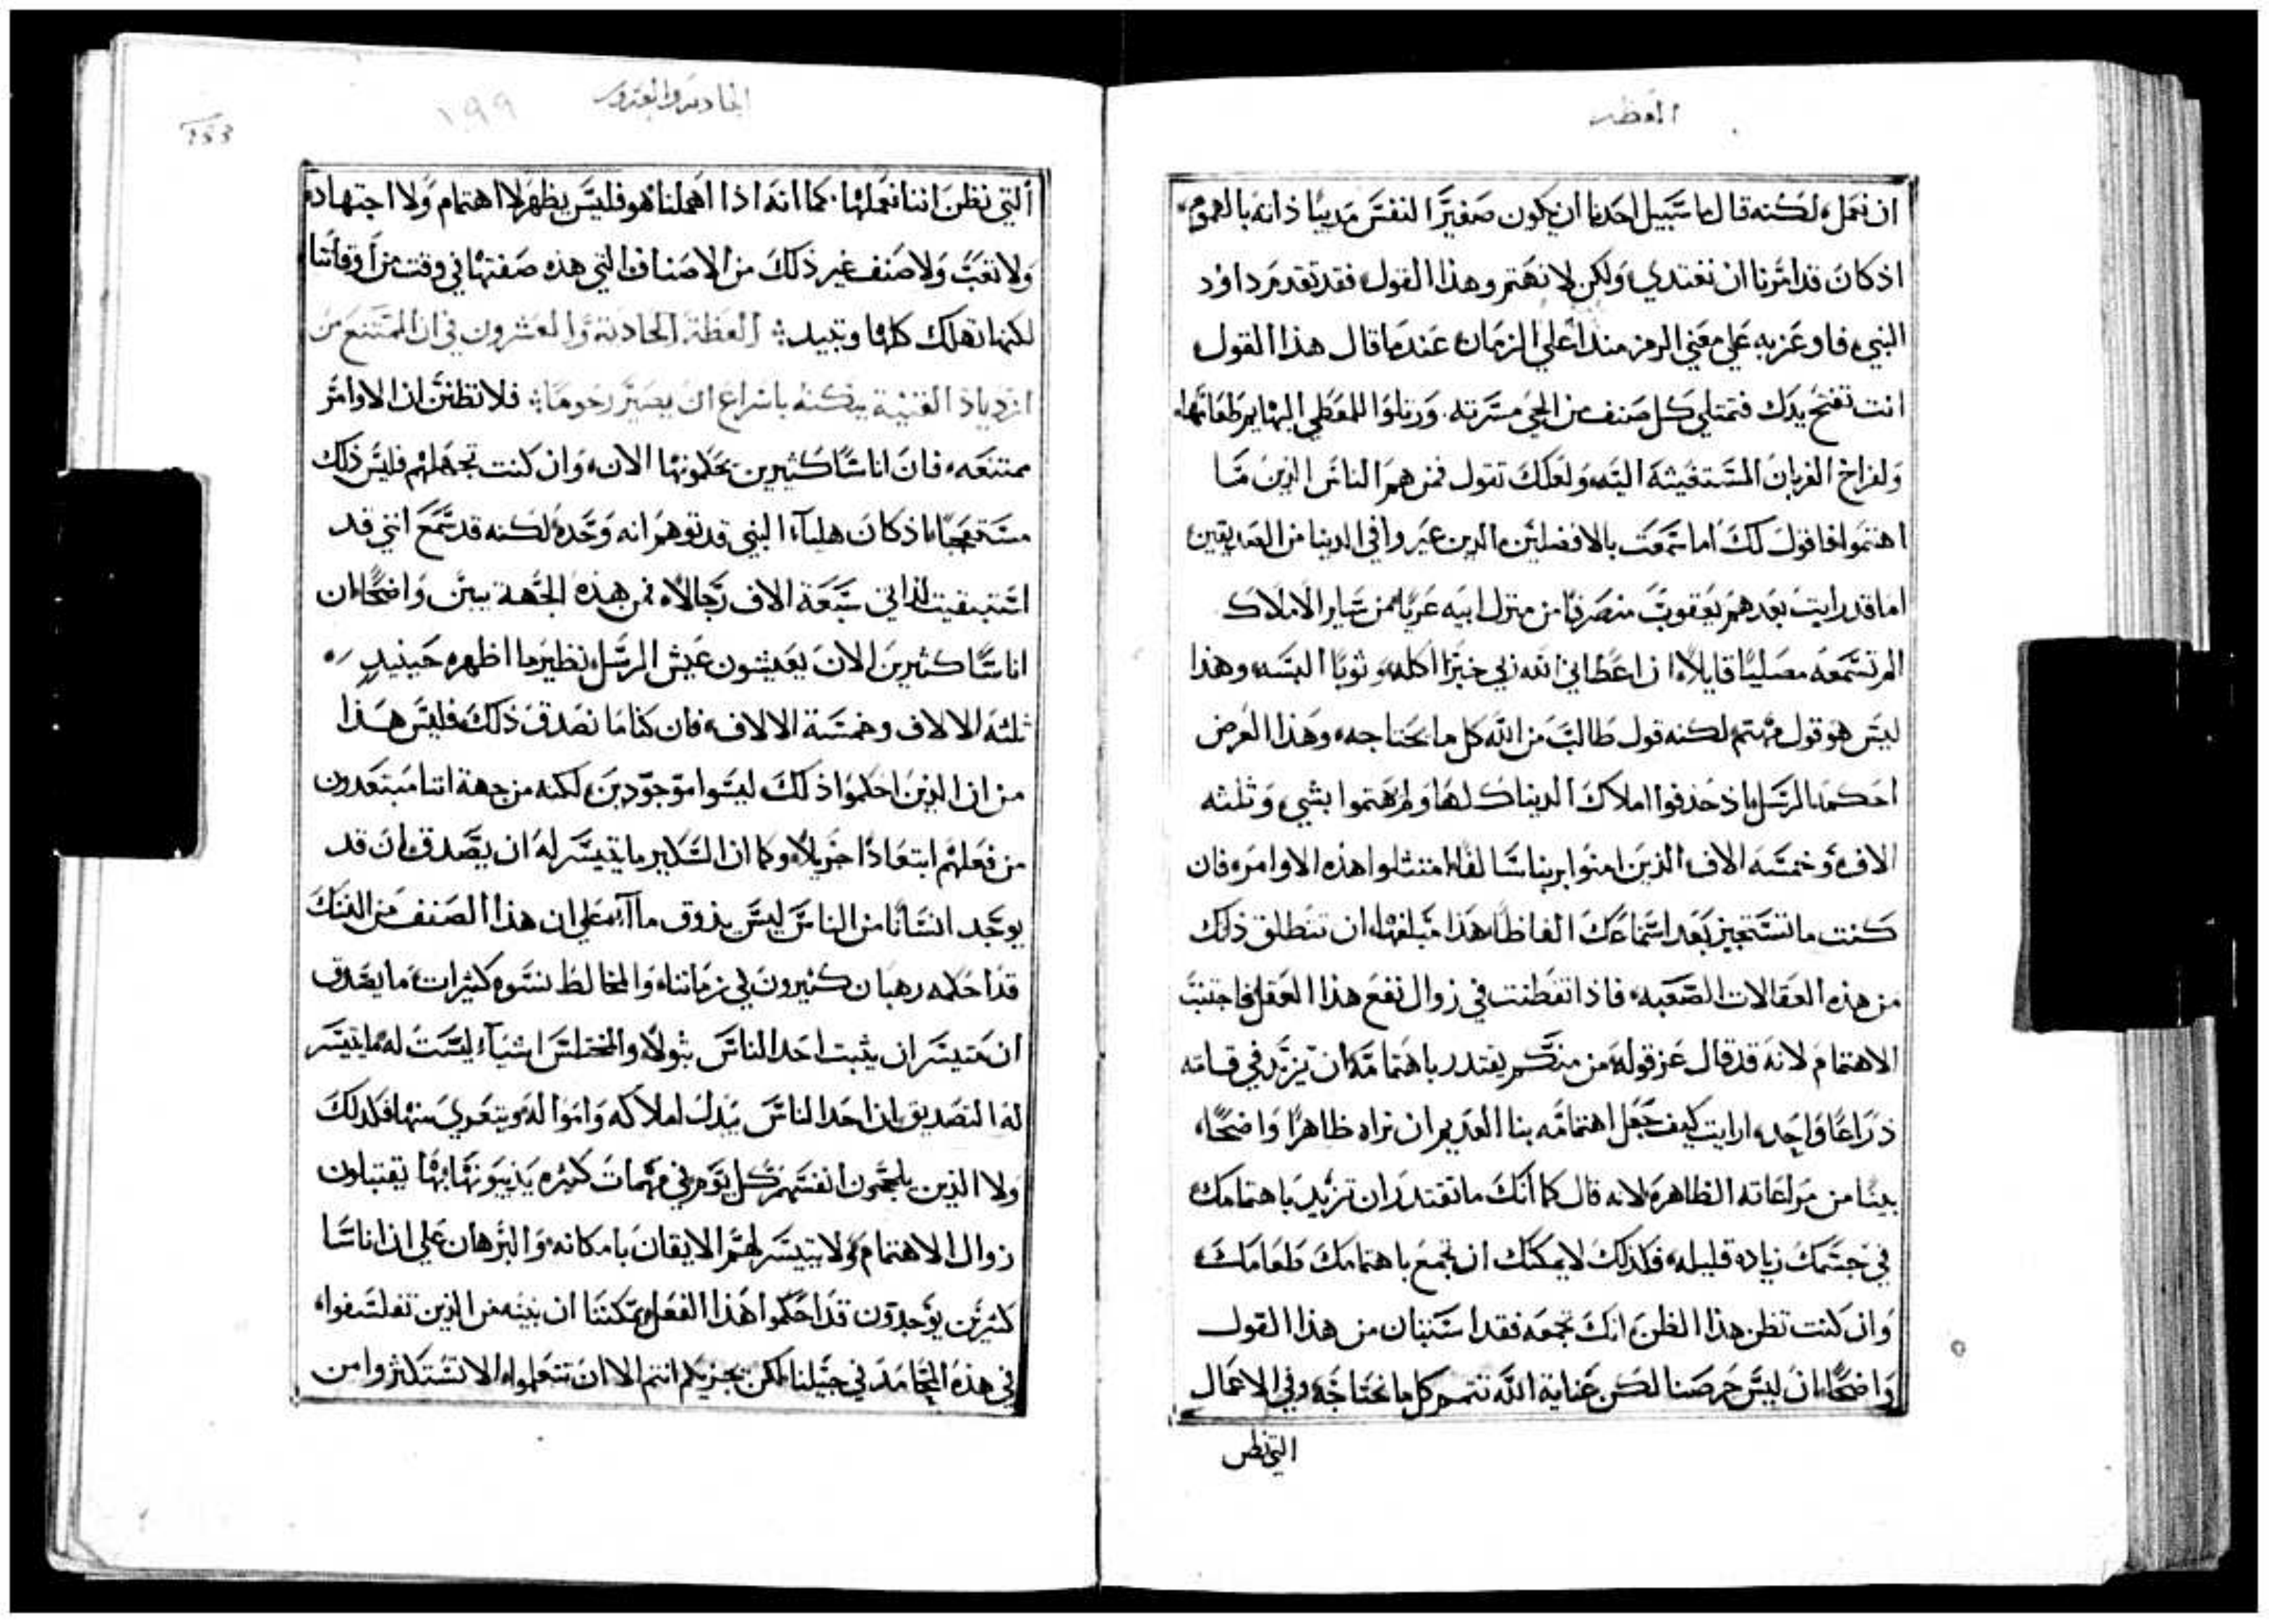 العظه
ان نعمل، لكنه قال ما سبيل احدنا ان يكون صغير النفس مذيبًا ذاته بالهموم،
اذ كان قد امرنا ان نغتدي، ولكن لا نهتم وهذا القول، فقد تقدم داود
النبي، فاوعز به على معني الرمز منذ اعلي الزمان، عندما قال هذا القول،
انت تفتح يدك فتمتلي كل صنف من الحي مسرته. ورتلوا للمعطي البهايم طعامها،
ولفراخ الغربان المستغيثه اليه، ولعلك تقول فمن هم الناس الذين ما
اهتموا، فاقول لك اما سمعت بالافضلين، الذين عبروا في الدنيا من الصديقين،
اما قد رايت بعدهم يعقوب منصرفًا من منزل ابيه عريًا من ساير الاملاك
الم تسمعه مصليًا قايلاً، ان اعطاني الله ربي خبزًا اكله، وثوبًا البسه، وهذا
ليس هو قول مهتم، لكنه قول طالب من الله كل ما يحتاجه، وهذا الغرض
احكمه الرسل، اذ حذفوا املاك الدنيا كلها ولم يهتموا بشي، وثلثه
الاف، وخمسه الاف، الذين امنوا بربنا سالفًا، امتثلوا هذه الاوامر، فان
كنت ما تستجيز بعد استماعك الفاظًا، هذا مبلغها، ان تنطلق ذلك
من هذه العقالات الصعبه، فاذا تفطنت في زوال نفع هذا العقل، فاجتنب
الاهتمام لانه قد قال عز قوله، من منكم يقتدر باهتمامه ان يزيد في قامته
ذراعًا واحد، ارايت كيف جعل اهتمامه بنا العديم ان نراه ظاهرًا واضحًا،
بينًا من مراعاته الظاهره، لانه قال كما انك ما تقتدر ان تزيد باهتمامك
في جسمك زياده قليله، فكذلك لا يمكنك ان تجمع باهتمامك طعامك،
وان كنت تظن هذا الظن، انك تجمعه فقد استبان من هذا القول
واضحًا، ان ليس حرصنا لكن عناية الله تتمم كل ما نحتاجه، وفي الاعمال
التي نظن
الحاديه والعشرون
١٩٩
التي نظن اننا نعملها. كما انه اذا اهملنا هو فليس يظهر لا اهتمام ولا اجتهاد
ولا تعب ولا صنف غير ذلك من الاصناف التي هذه صفتها في وقت من اوقاتنا
لكنها تهلك كلها وتبيد: العظة الحادية والعشرون في ان الممتنع من
ازدياد القنية يمكنه باسراع ان يصير رحومًا: فلا تظنن ان الاوامر
ممتنعه، فان اناسًا كثيرين يحكمونها الان، وان كنت تجهلهم فليس ذلك
مستعجبًا، اذ كان هليآء النبي قد توهم انه وحده لكنه قد سمع انني قد
استبقيت لذاتي سبعة الاف رجالاً، فمن هذه الجهة يبين واضحًا، ان
اناسًا كثيرين الان يعيشون عيش الرسل، نظير ما اظهره حينيدٍ
ثلثة الالاف وخمسة الالاف، فان كنا ما نصدق ذلك، فليس هذا
من ان الذين احكموا ذلك ليسوا موجودين، لكنه من جهة اننا مبتعدون
من فعلهم ابتعادًا جزيلاً، وكما ان السكير ما يتيسر له ان يصدق ان قد
يوجد انسانًا من الناس ليس يذوق مآآ، علي ان هذا الصنف من النسك
قد احكمه رهبان كثيرون في زماننا، والمخالط نسوه كثيرات، ما يصدق
ان متيسر ان يثبت احد الناس بتولاً، والمختلس اشيآء ليست له، ما يتيسر
له التصديق بان احد الناس يبدل املاكه وامواله، ويتعري منها، فكذلك
ولا الذين يلجمون انفسهم كل يوم في مهمات كثيره يذيبونها بها يقتبلون
زوال الاهتمام، ولا يتيسر لهم الايقان بامكانه، والبرهان علي ان اناسًا
كثيرين يوجدون قد احكموا هذا الفعل، يمكننا ان نبينه من الذين تفلسفوا،
في هذه المحامد في جيلنا، لكن يجزيكم انتم الان ان تتعلموا، الا تستكثروا من